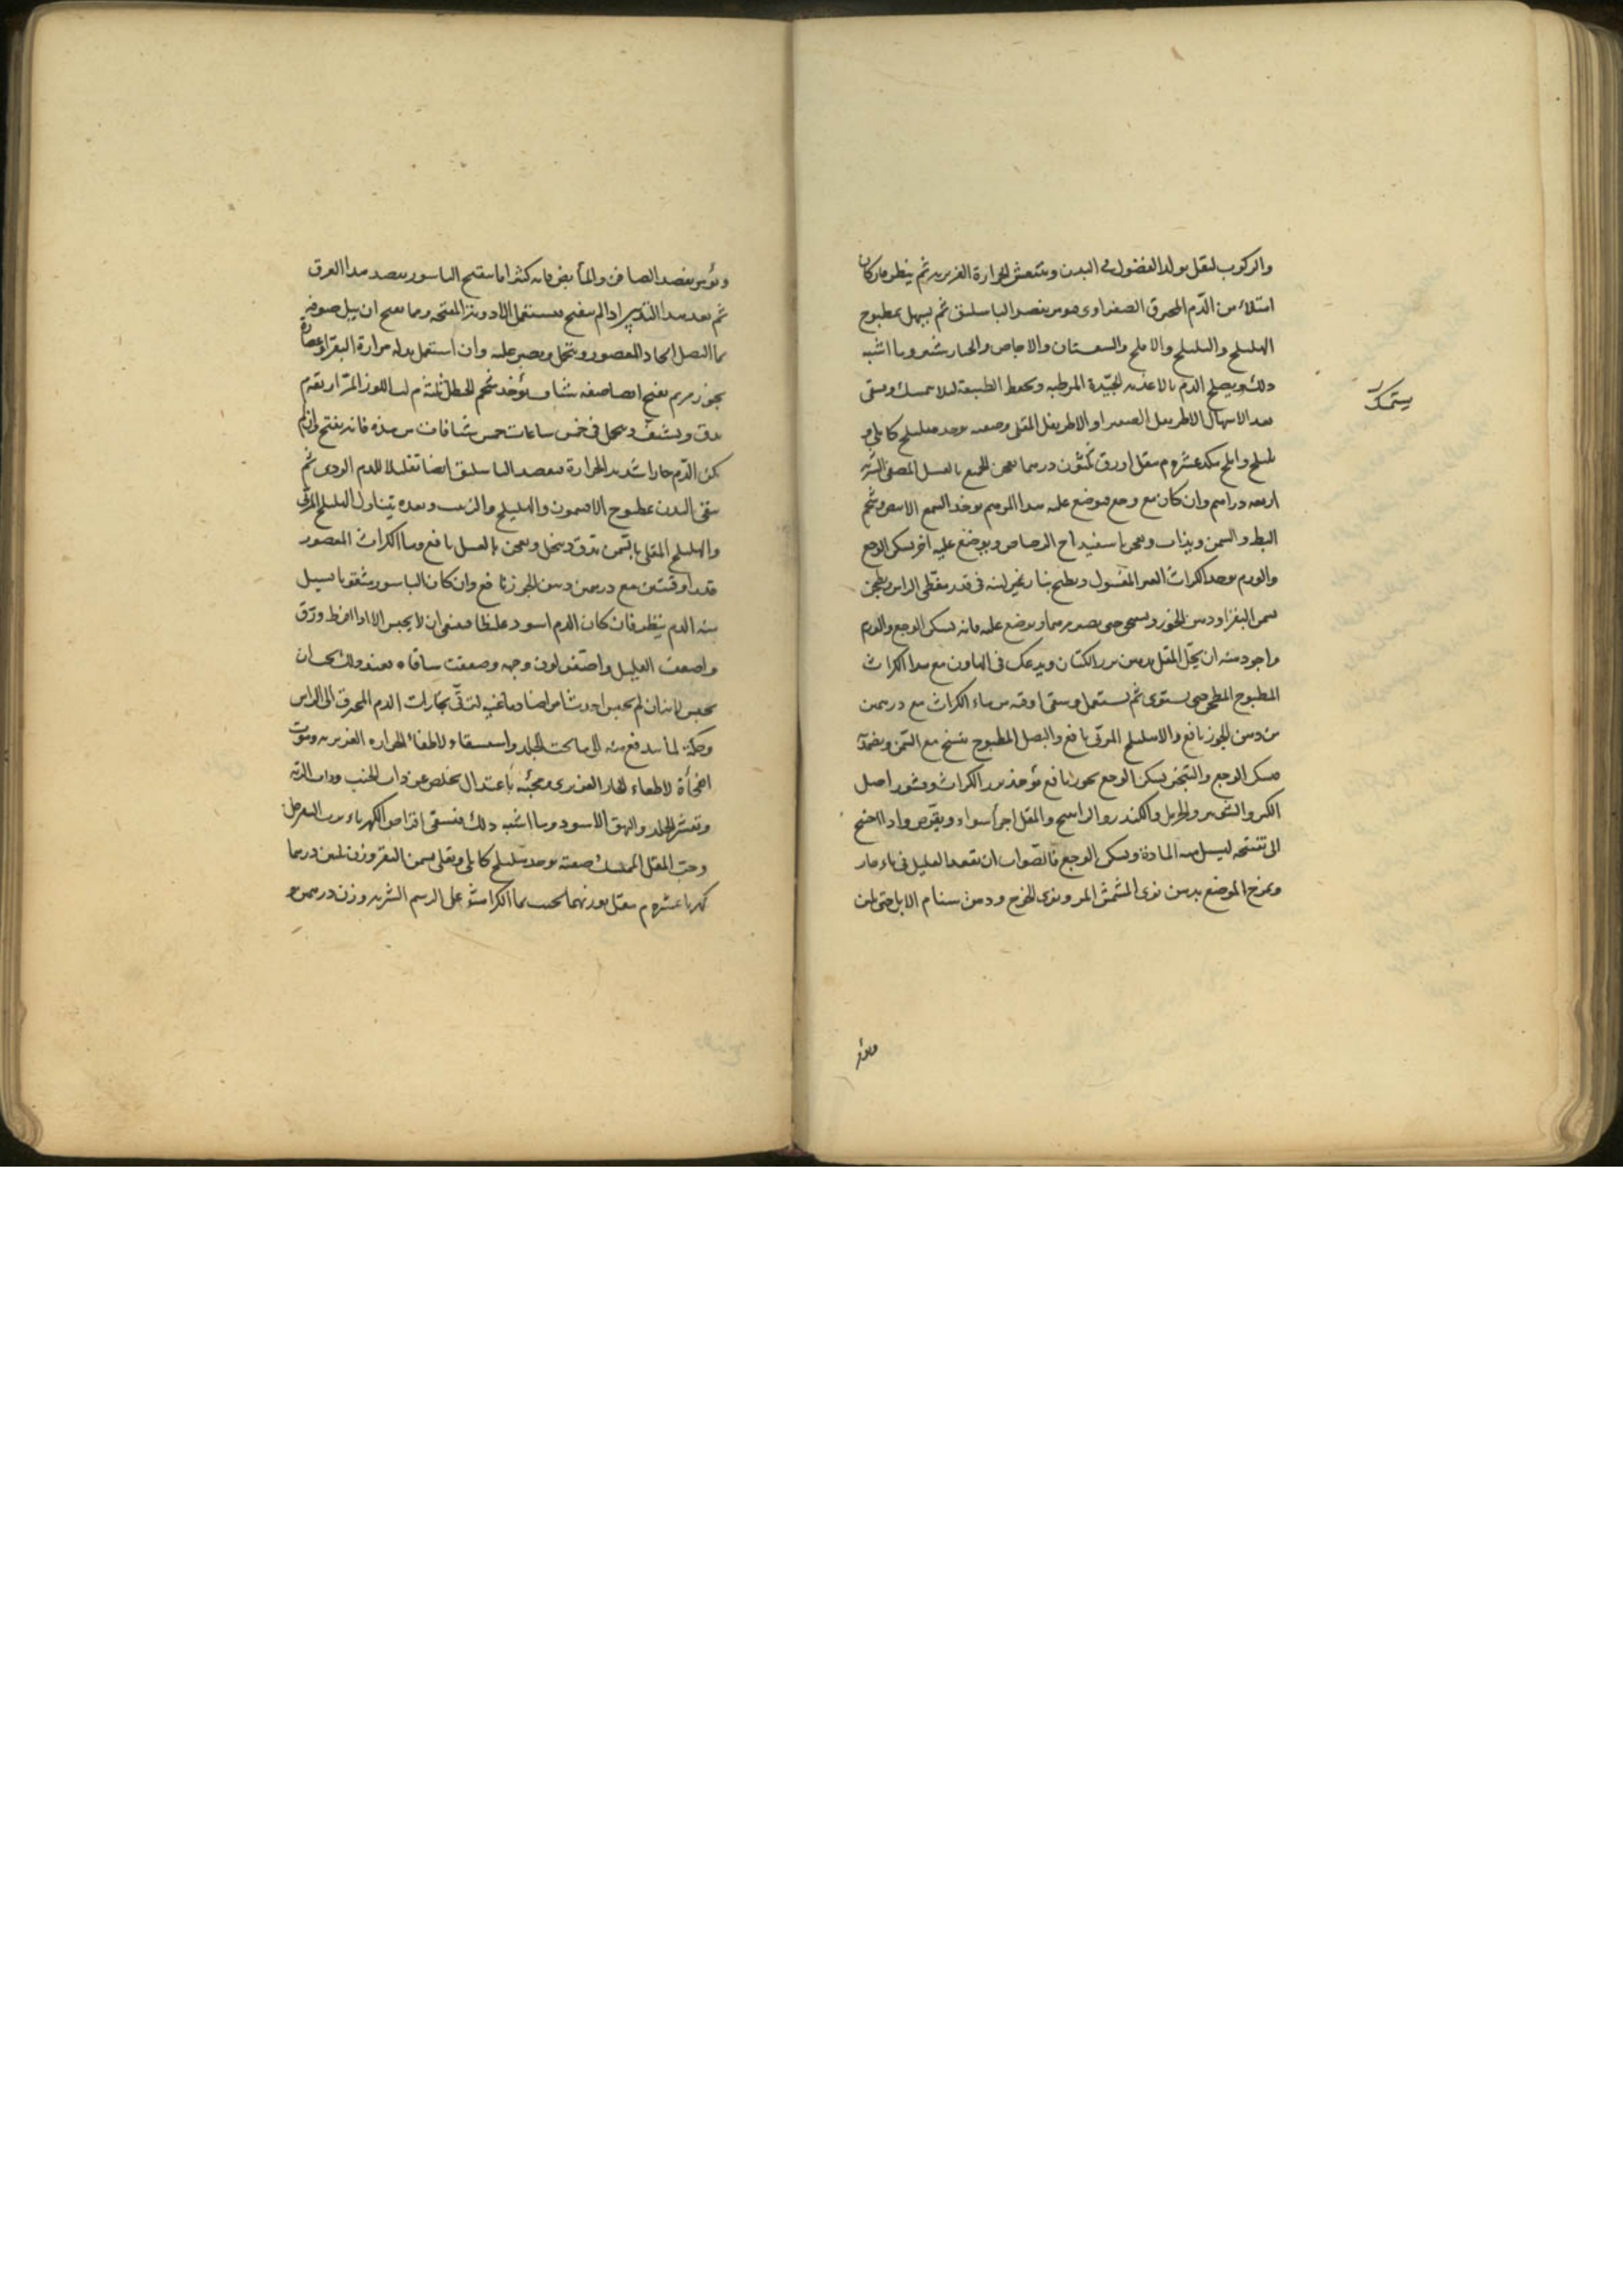 والركوب لتقل تولد الفضول في البدن وتنتعش الحرارة الغريزية ثم ينظر فان كان
امتلأ من الدم المحرق الصفراوي فيؤمر بفصد الباسليق ثم يسهل بمطبوخ
الهليلج والبليلج والاملج والسبستان والاجاص والخيار شنبر وما اشبه
ذلك ويصلح الدم بالاغذية الجيدة المرطبة ويحفظ الطبيعة لئلا تمسك ويسقى
يستمسك
بعد الاسهال الاطريفل الصغير او الاطريفل المقلي وصفته يوخذ هليلج كابلي و
بليلج واملج مكد عشرة م مقل ازرق ثلثون درهما يعجن الجميع بالعسل المصفى الشربة
اربعة دراهم وان كان مع وجع فيوضع عليه هذا المرهم يوخذ الشمع الابيض وشحم
البط والسمن ويذاب ويعجن باسفيداج الرصاص ويوضع عليه اخر يسكن الوجع
والورم يوخذ الكراث الغير المغسول ويطبخ بنار لينة في قدر مغطى الراس ويعجن
بسمن البقر او دهن الخوخ ويسحق حتى يصير مرهما ويوضع عليه فانه يسكن الوجع والورم
واجود منه ان يحل المقل بدهن بزر الكتان ويدعك في الهاون مع هذا الكراث
المطبوخ المطحن حتى يستوي ثم يستعمل ويسقى اوقية من ماء الكراث مع درهمين
من دهن الجوز نافع والاهليلج المربى نافع والبصل المطبوخ يسخن مع السمن ويضمد به
فيسكن الوجع والتبخر يسكن الوجع بخور نافع يؤخذ بزر الكراث وقشور اصل
الكبر والشعير والحرمل والكندر والراتينج والمقل اجزأ سواء ويقرص واذا احتيج
الى تفتحه ليسيل منه المادة ويسكن الوجع فالصواب ان يقعد العليل في ماء حار
ويمرخ الموضع بدهن نوى المشمش المر ونوى الخوخ ودهن سنام الابل حتى يلين
ويؤمر
ويؤمر بفصد الصافن والمأبض فانه كثيرا ما يفتح الباسور بفصد هذا العرق
ثم بعد هذا التدبير اذا لم ينفتح يستعمل الادوية المفتحة ومما يفتح ان يبل صوفة
بماء البصل الحاد المعصور ويتحمل ويصبر عليه وان استعمل بدله مرارة البقر او عصارة
بخور مريم يفتح ايضا صفة شياف يؤخذ شحم الحنظل ثلثة م لب اللوز المر اربعة م
يدق ويشيف ويتحمل في خمس ساعات خمس شيافات من هذه فانه يفتح وان لم
يكن الدم حارا شديد الحرارة فيفصد الباسليق ايضا تقليلا للدم الردي ثم
ينقى البدن بمطبوخ الافتيمون والهليلج والزبيب وبعده يتناول الهليلج المربى
والهليلج المقلي بالسمن يدق وينخل ويعجن بالعسل نافع وماء الكراث المعصور
قدر اوقيتين مع درهمين دهن الجوز نافع وان كان الباسور مثقوبا يسيل
منه الدم ينظر فان كان الدم اسود غليظا فينبغي ان لا يحبس الا اذا افرط ورق
واضعف العليل واصفر لون وجهه وضعفت ساقاه فعند ذلك يجب ان
يحبس لانه ان لم يحبس
وحكة لما يندفع منه الى ما تحت الجلد واستسقاء لاطفاء الحرارة الغريزية وموت
الفجأة لاطفاء الحار الغريزي ومجيئه باعتدال يخلص عن ذات الجنب وذات الرئة
وتقشر الجلد والبهق الاسود وما اشبه ذلك فيسقى اقراص الكهرباء برب السفرجل
وحب المقل الممسك صفته يوخذ هليلج كابلي ويقلى بسمن البقر وزن ثلثين درهما
كهربا عشرة م مقل بوزنهما يحبب بماء الكراث على الرسم الشربة وزن درهمين و